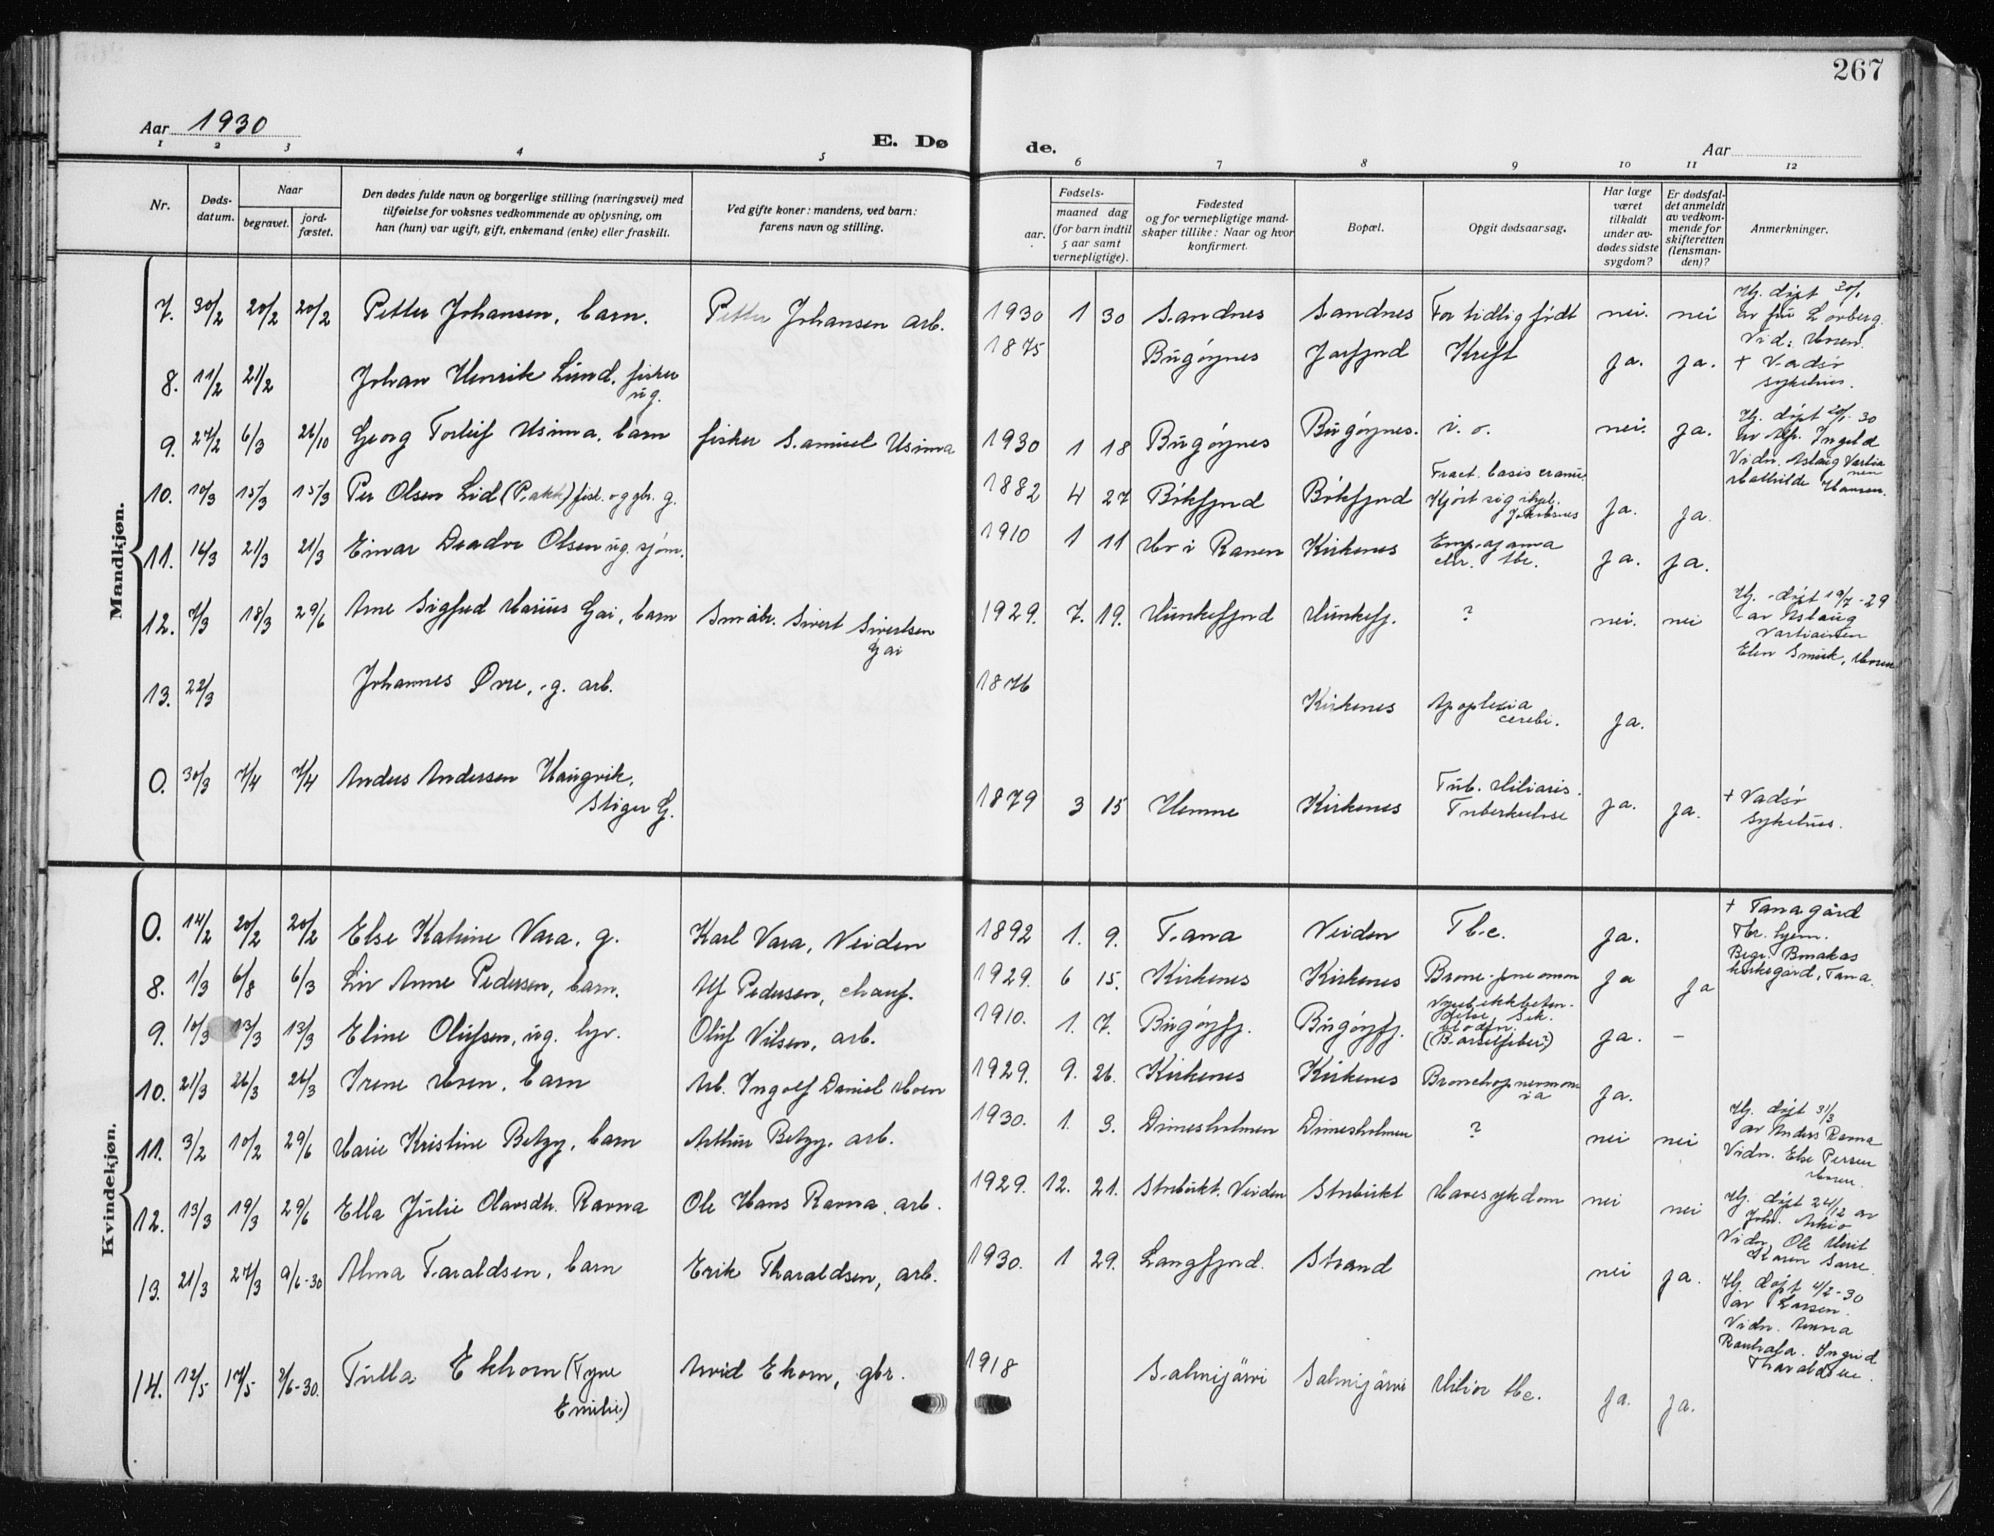 267
Aar 1930
E. Dø
de.
Aar
1 2 3 4 5 6 7 8 9 10 11 12
Nr.
Døds-
datum.
Naar
begravet.
jord-
fæstet.
Den dødes fulde navn og borgerlige stilling (næringsvei) med
tilføielse for voksnes vedkommende av oplysning, om
han (hun) var ugift, gift, enkemand (enke) eller fraskilt.
Ved gifte koner: mandens, ved barn:
farens navn og stilling.
Fødsels-
aar. maaned dag
(for barn indtil
5 aar samt
vernepligtige).
Fødested
og for vernepligtige mand-
skaper tillike: Naar og hvor
konfirmert.
Bopæl.
Opgit dødsaarsag.
Har læge
været
tilkaldt
under av-
dødes sidste
sygdom?
Er dødsfal-
det anmeldt
av vedkom-
mende for
skifteretten
(lensman-
den)?
Anmerkninger.
Mandkjøn.
7. 30/2 20/2 20/2 Petter Johansen, barn. Petter Johansen arb. 1930 1 30 Sandnes Sandnes For tidlig født nei. nei Hj. døpt 30/1
av fru Lorberg.
8. 11/2 21/2 Johan Henrik Lund, fisker
ug. 1875 Bugøynes Jarfjord Kreft ja. ja. + Vadsø
sykehus.
9. 27/2 6/3 26/10 Georg Torleif Usima, barn fisker Samuel Usima 1930 1 18 Bugøynes Bugøynes. i. o. nei. ja. Hj. døpt 20/1-30
Vidn. Aslaug Vartia
nen
Mathilde Hansen.
10. 10/3 15/3 15/3 Per Olsen Lid (Pakk) fisk. og gbr. g. 1882 4 27 Bøkfjord Bøkfjord Fract. basis cranii.
Kjørt sig ihjel.
Jakobsnes ja. ja.
11. 14/3 21/3 21/3 Einar Deodor Olsen ug. sjøm. 1910 1 11 Mo i Ranen Kirkenes Empyema
chr. tbc. ja. ja.
12. 7/3 18/3 29/6 Arne Sigfred Marius Gai, barn Småbr. Sivert Sivertsen
Gai 1929. 7. 19. Munkefjord Munkefj. ? nei. nei Hj. døpt 19/7-29
av Aslaug
Vartiainen
13. 22/3 Johannes Øvre, g. arb. 1876 Kirkenes Apoplexia
cerebi. ja.
O. 30/3 7/4 7/4 Anders Andersen Haugvik,
Stiger G. 1879 3 15 Hemne Kirkenes Tub. Miliaris.
Tuberkulose ja. ja. + Vadsø
sykehus.
Kvindekjøn.
O. 14/2 20/2 20/2 Else Katrine Vara, g. Karl Vara, Neiden 1892 1. 9. Tana Neiden Tbc. ja. + Tana gård
Tbr. hjem.
kirkegård, Tana.
8. 1/3 6/8 6/3 Liv Anne Pedersen, barn. Alf Pedersen, chauf. 1929. 6 15. Kirkenes Kirkenes Bronc. pneomon ja ja
9. 10/3 13/3 13/3 Eline Olufsen, ug. Oluf Nilsen, arb. 1910. 1. 7. Bugøyfj. Bugøyfj. (Barselfeber?) ja. –
10. 21/3 26/3 26/3 Irene Moen, barn Arb. Ingolf Daniel Moen 1929. 9. 26. Kirkenes Kirkenes Bronchopnevmon
ia ja.
11. 3/2 10/2 29/6 Marie Kristine Betzy, barn Arthur Betzy, arb. 1930. 1. 3. Dimesholmen Dimesholmen ? nei nei Hj. døpt 31/3
av Anders Ravna
Vidn. Else Persen
12. 13/3 19/3 29/6 Ella Julie Olavsdtr. Ravna Ole Hans Ravna, arb. 1929. 12. 21. Storbukt. Neiden Storbukt Mavesykdom nei nei Hj. døpt 24/12 av
Vidn. Ole
Karen Sarre.
13. 21/3 27/3 9/6-30 Alma Taraldsen, barn Erik Tharaldsen, arb. 1930. 1 29. Langfjord. Strand nei ja. Hj. døpt 4/2-30
av Larsen.
Vidn. Anna
Ingrid
Tharaldsen.
14. 12/5 17/5 2/6-30. Tulla Ekhorn (Tyne
Emilie) Arvid Ekorn, gbr. 1918 Salmijärvi Salmijärvi Miliær tbc. ja. ja.